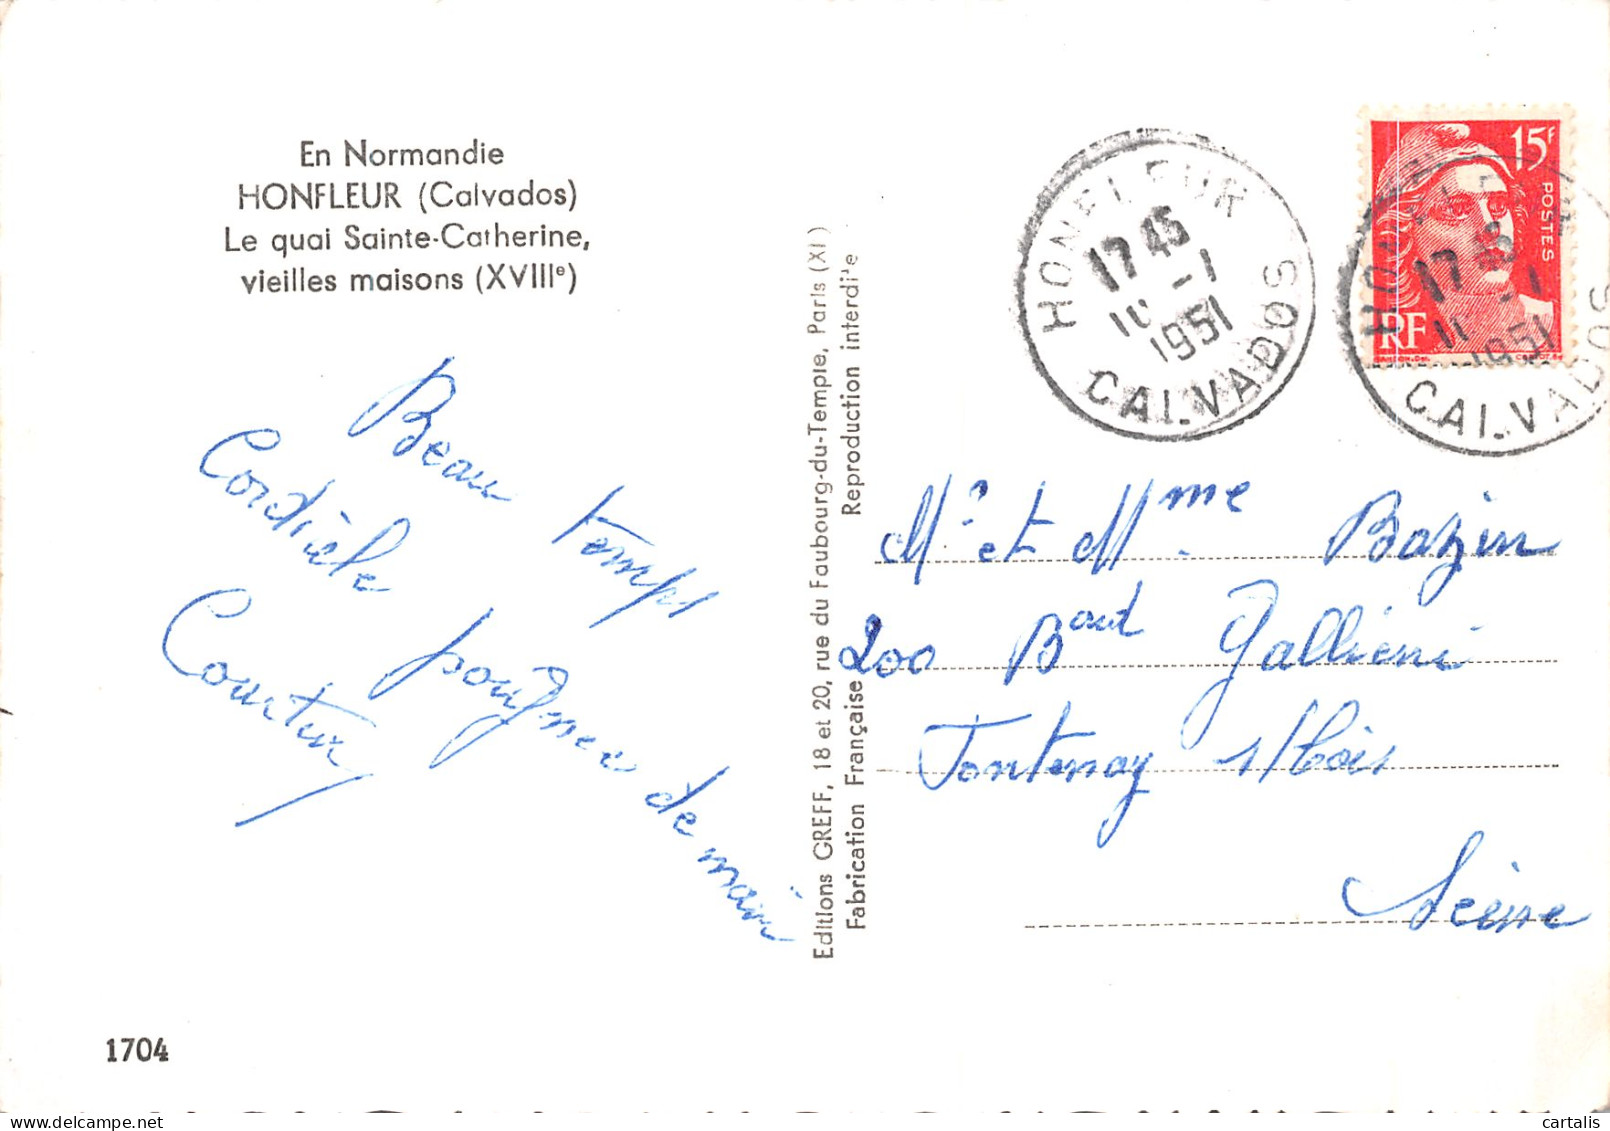 En Normandie
HONFLEUR (Calvados)
Le quai Sainte-Catherine,
vieilles maisons (XVIIIᵉ)
Beau temps
Cordiale poignée de main
1704
Editions GREFF, 18 et 20, rue du Faubourg-du-Temple, Paris (XI)
Fabrication Française Reproduction interdi'e
HONFLEUR
17 45
-1
1951
CALVADOS
15F
POSTES
RF
HONFLEUR
17 45
-1
1951
CALVADOS
Mr et Mme Bazin
200 Bard Galliéni
Fontenay s/Bois
Seine
cartalis
www.delcampe.net